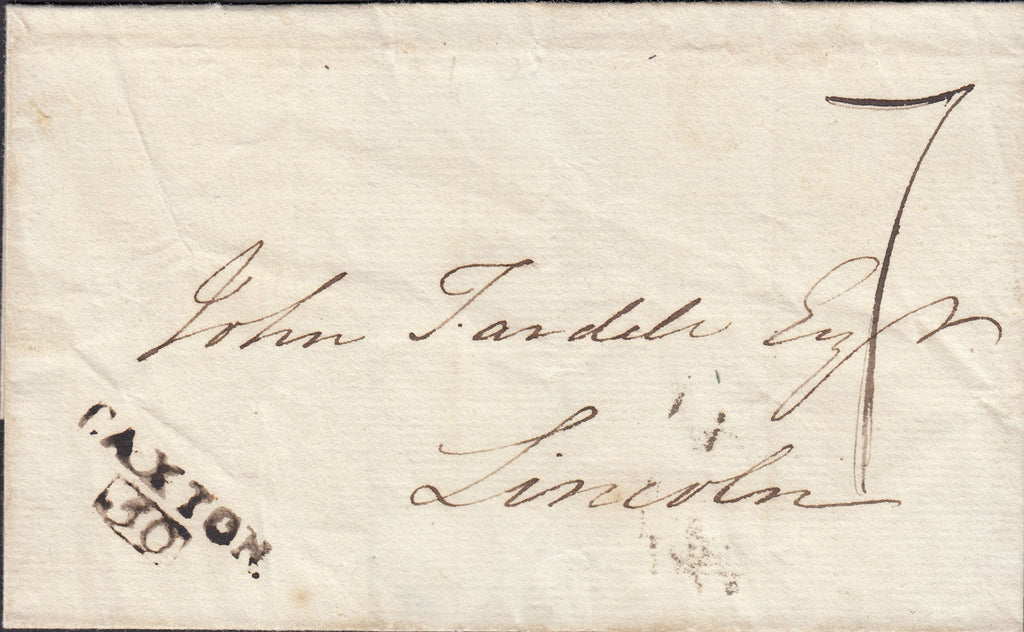 7
John Tardell Esqr
Lincoln
CAXTON.
50